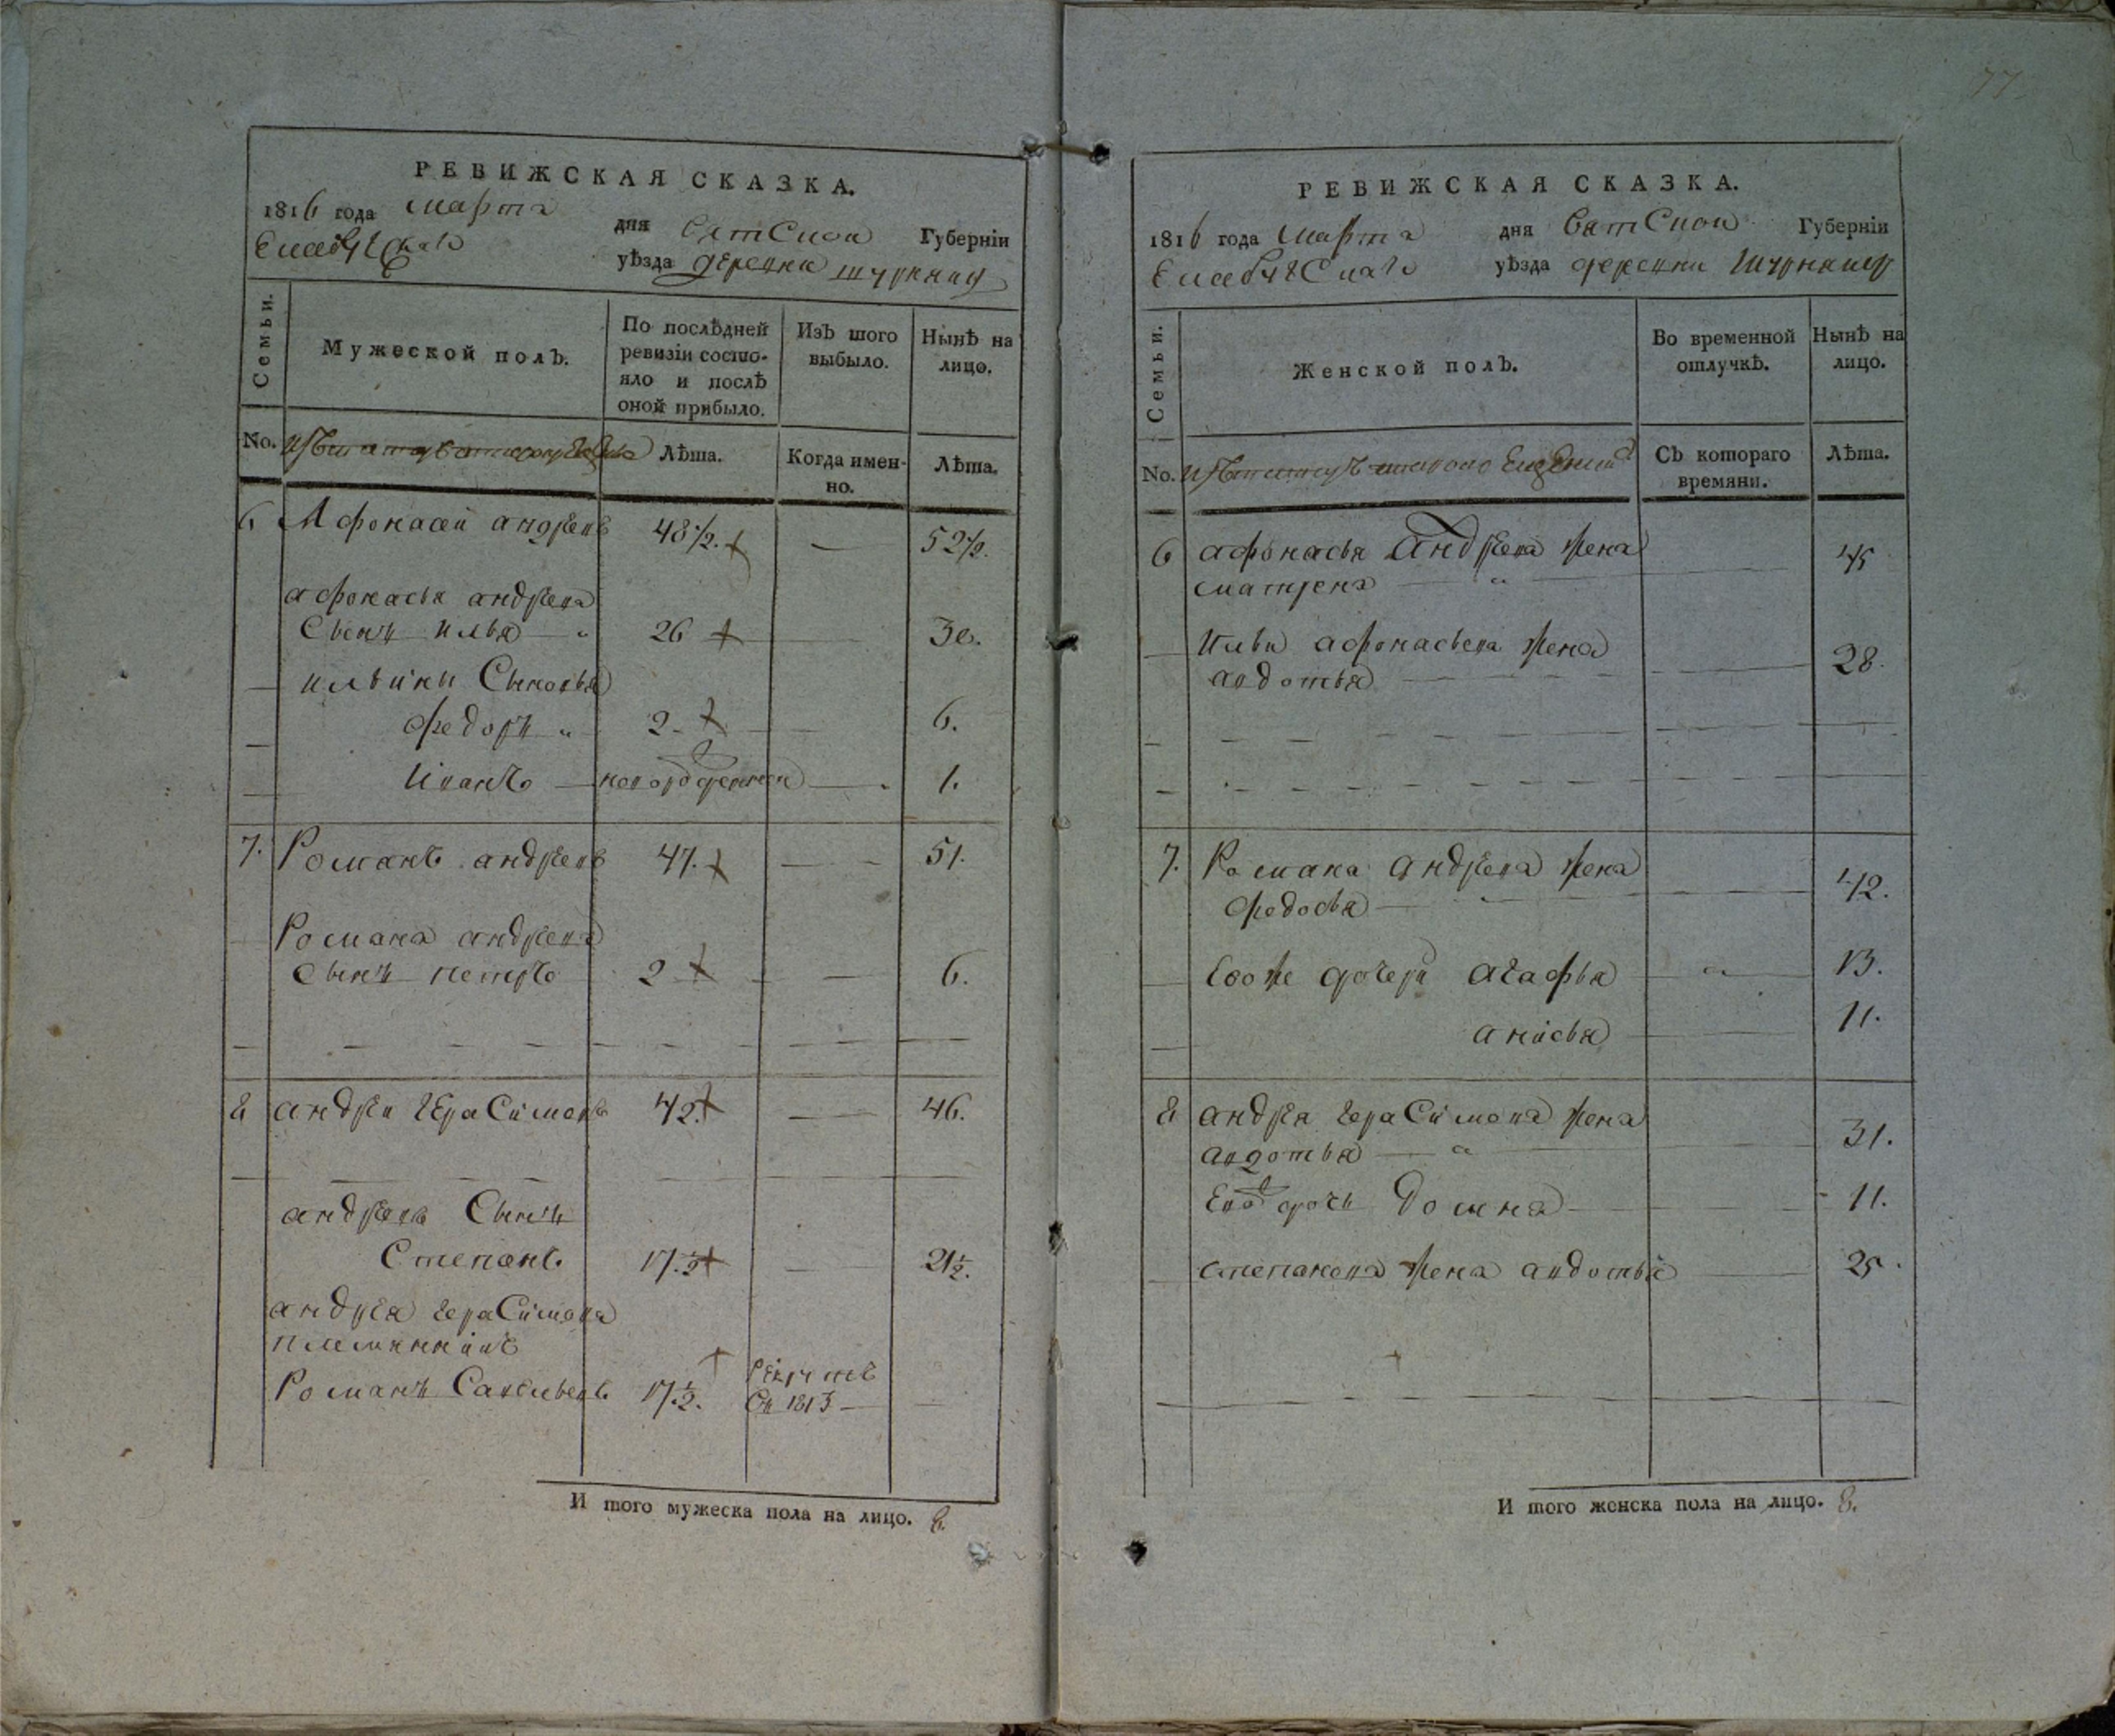 77
РЕВИЖСКАЯ СКАЗКА.
1816 года марта дня Вятской Губернїи
Елабужскаго уѣзда деревни
Семьи. Мужеской полъ. По послѣдней ревизїи состояло и послѣ оной прибыло. Изъ того выбыло. Нынѣ на лицо.
No. Лѣта. Когда именно. Лѣта.
6 Афонасей андреевъ 48 1/2. — 52 1/2.
афонасья андреева
сынъ илья 26 — 30.
ильины Сыновья
федоръ 2 — 6.
Иванъ новорожденной — 1.
7. Романъ андреевъ 47. — 51.
Романа андреева
сынъ петръ 2 — 6.
8 андрей герасимовъ 42. — 46.
андреевъ Сынъ
Степанъ 17 1/2 — 21 1/2.
андрея герасимова
племянникъ
Романъ Савельевъ 17 1/2. рекрутъ
въ 1813 —
И того мужеска пола на лицо. 8.
РЕВИЖСКАЯ СКАЗКА.
1816 года марта дня Вятской Губернїи
Елабужскаго уѣзда деревни
Семьи. Женской полъ. Во временной отлучкѣ. Нынѣ на лицо.
No. Съ котораго времяни. Лѣта.
6 афонасья Андреева жена
матрена 45
Ильи афонасьева жена
авдотья 28.
7. Романа андреева жена
федосья 42.
Евоже дочери агафья 13.
анисья 11.
8 андрея герасимова жена
авдотья 31.
Ево дочь Домна 11.
степанова жена авдотья 25.
И того женска пола на лицо. 8.